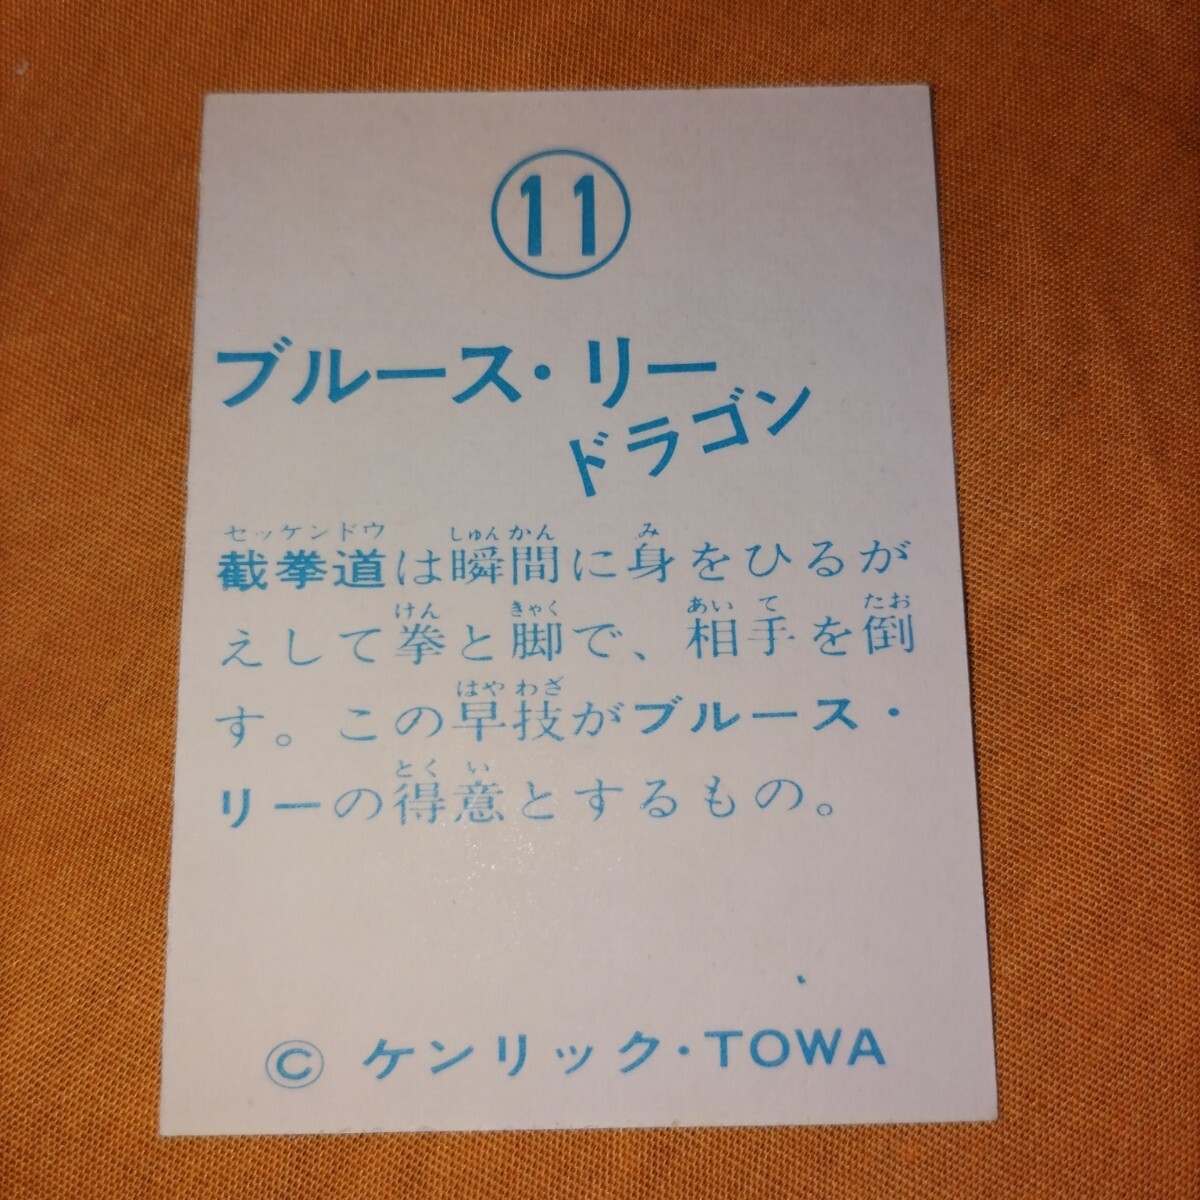 11
ブルース・リー
ドラゴン
セッケンドウ しゅんかん み
截拳道は瞬間に身をひるが
けん きゃく あい て たお
えして拳と脚で、相手を倒
はや わざ
す。この早技がブルース・
とく い
リーの得意とするもの。
© ケンリック・TOWA